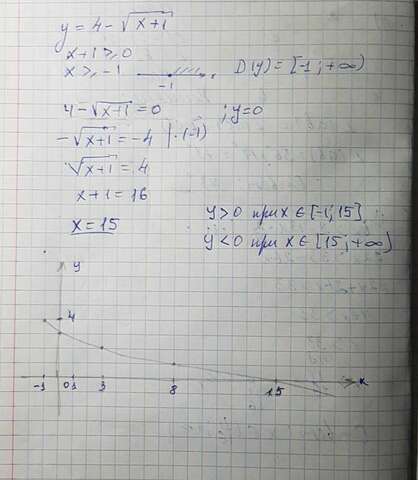 y = 4 - √x+1
x+1 ≥ 0
x ≥ -1
-1
D(y) = [-1; +∞)
4 - √x+1 = 0 ; y=0
-√x+1 = -4 | · (-1)
√x+1 = 4
x+1 = 16
x = 15
y > 0 при x ∈ [-1; 15]
y < 0 при x ∈ [15; +∞)
y
4
-1 0 1 3 8 15 x